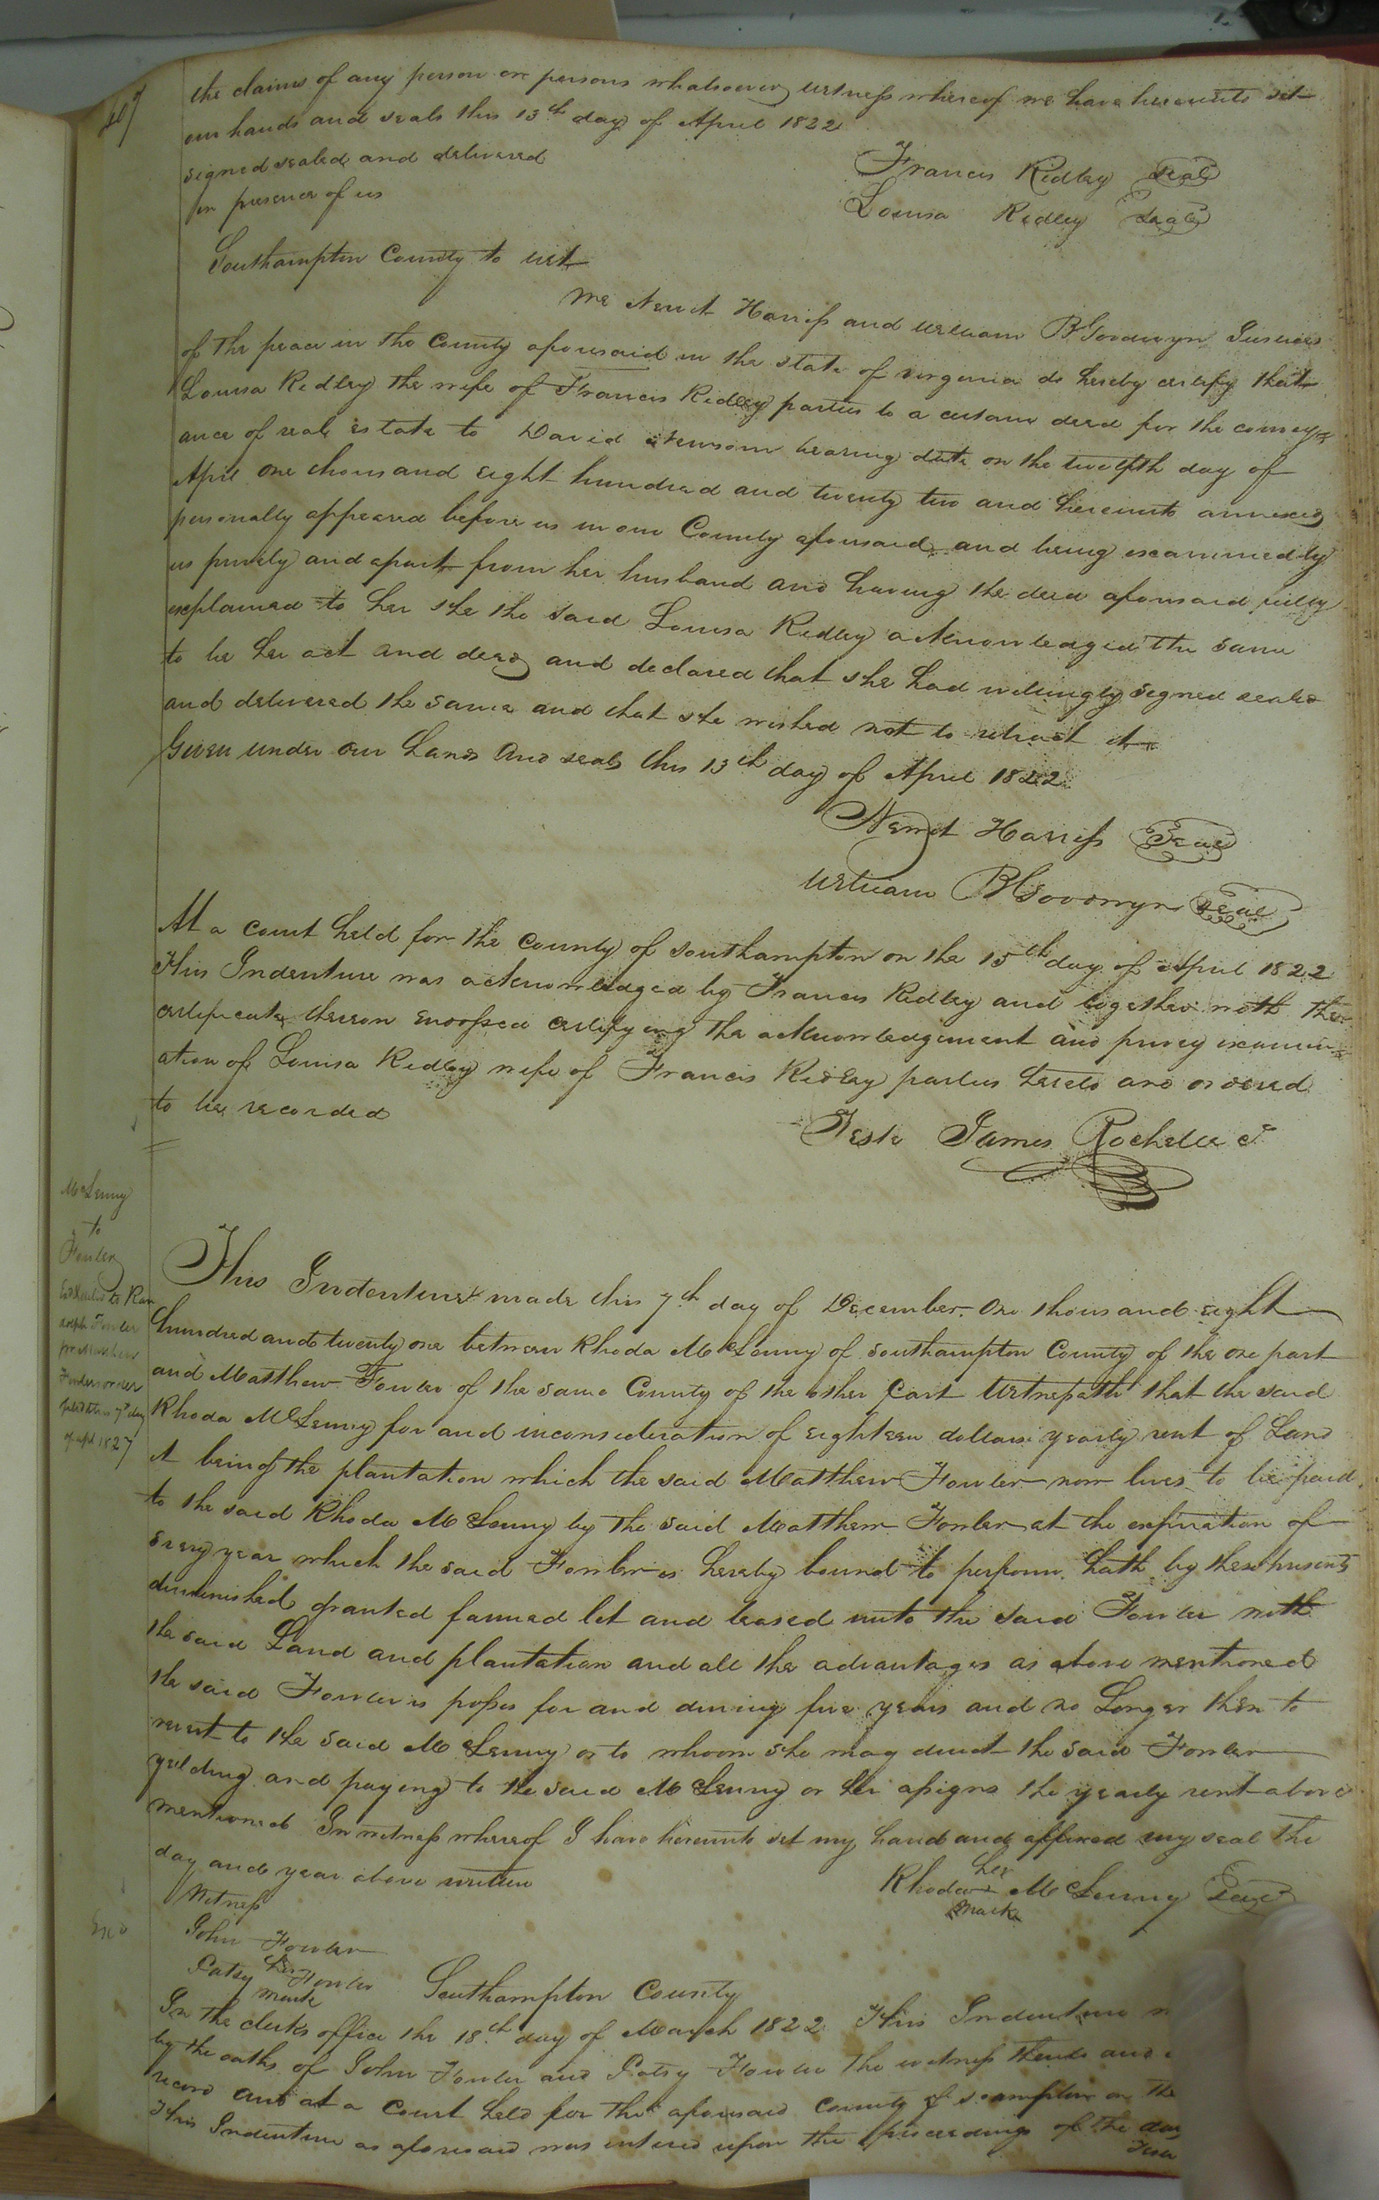 the claims of any person or persons whatsoever witness whereof we have hereunto set
our hands and seals this 13th day of April 1822
signed sealed and delivered
in presence of us
Francis Ridley seal
Louisa Ridley seal
Southampton County to wit
We Newit Harriss and William B Goodwyn Justices
of the peace in the County aforesaid in the state of virginia do hereby certify that
Louisa Ridley the wife of Francis Ridley parties to a certain deed for the convey=
ance of real estate to David Newsom bearing date on the twelfth day of
April one thousand eight hundred and twenty two and hereunto annexed
personally appeared before us in our County aforesaid and being examined by
us privily and apart from her husband and having the deed aforesaid fully
explained to her she the said Louisa Ridley acknowledged the same
to be her act and deed and declared that she had willingly signed sealed
and delivered the same and that she wished not to retract it
Given under our hands and seals this 13th day of April 1822
Newit Harriss Seal
William B Goodwyn Seal
At a court held for the county of southampton on the 15th day of April 1822
This Indenture was acknowledged by Francis Ridley and together with the
certificate thereon endorsed certifying the acknowledgement and privy examin=
ation of Louisa Ridley wife of Francis Ridley parties hereto are ordered
to be recorded
Teste James Rochelle C
McLenny
to
Fowler
to Ran
dolph Fowler
for Matthew
Fowler order
7th day
of 1827
This Indenture made this 7th day of December One thousand eight
hundred and twenty one between Rhoda McLenny of Southampton County of the one part
and Matthew Fowler of the same County of the other part Witnesseth that the said
Rhoda McLenny for and in consideration of eighteen dollars yearly rent of Land
it being the plantation which the said Matthew Fowler now lives to be paid
to the said Rhoda McLenny by the said Matthew Fowler at the expiration of
every year which the said Fowler is hereby bound to perform hath by these presents
diminished granted farmed let and leased unto the said Fowler with
the said Land and plantation and all the advantages as above mentioned
the said Fowler is posses for and during five years and no Longer then to
revert to the said McLenny or to whoom she may direct the said Fowler
yielding and paying to the said McLenny or her assigns the yearly rent above
mentioned In witness whereof I have hereunto set my hand and affixed my seal the
day and year above written
Rhoda her mark McLenny Seal
Witness
John Fowler
Patsy her mark Fowler
Southampton County
In the clerks office the 18th day of March 1822 This Indenture
by the oaths of John Fowler and Patsy Fowler the witness thereto and
record And at a Court held for the aforesaid county of on the
This Indenture as aforesaid was entered upon the proceedings of the day